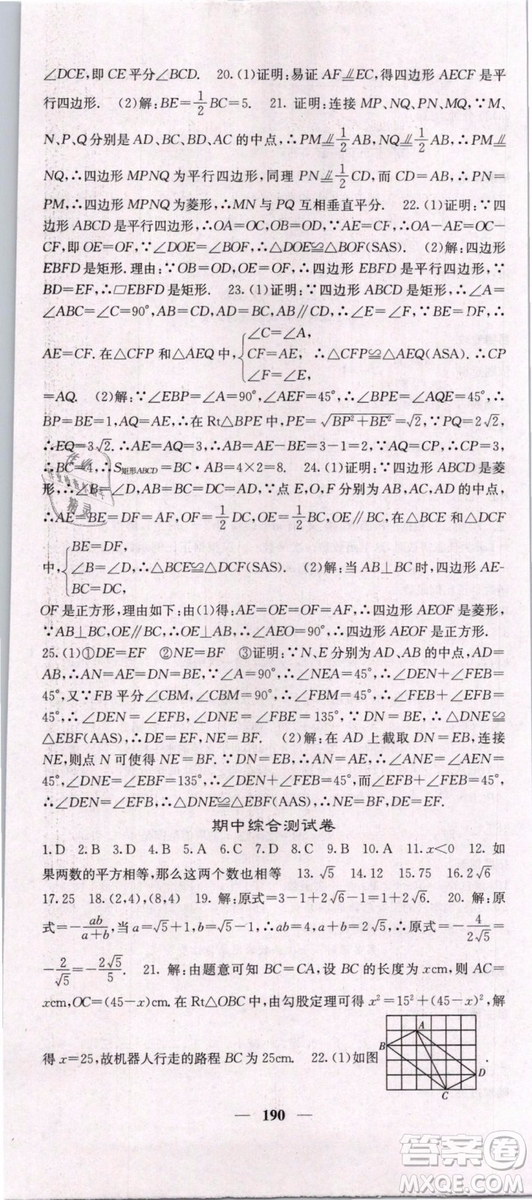 ∠DCE,即 CE 平分∠BCD. 20.(1)证明:易证 AF⫫EC,得四边形 AECF 是平
行四边形. (2)解:BE=1/2BC=5. 21. 证明:连接 MP、NQ、PN、MQ,∵M、
N、P、Q 分别是 AD、BC、BD、AC 的中点,∴PM⫫1/2AB,NQ⫫1/2AB,∴PM
⫫NQ,∴四边形 MPNQ 为平行四边形,同理 PN⫫1/2CD,而 CD=AB,∴PN=
PM,∴四边形 MPNQ 为菱形,∴MN 与 PQ 互相垂直平分. 22.(1)证明:∵四
边形 ABCD 是平行四边形,∴OA=OC,OB=OD,∵AE=CF,∴OA-AE=OC-
CF,即 OE=OF,∴△BOE≌△DOF(SAS). (2)解:四边形
EBFD 是矩形. 理由:∵OB=OD,OE=OF,∴四边形 EBFD 是平行四边形,∵
BD=EF,∴▱EBFD 是矩形. 23.(1)证明:∵四边形 ABCD 是矩形,∴∠A=
∠ABC=∠C=90°,AB=CD,AB∥CD,∴∠E=∠F,∵BE=DF,∴
AE=CF. 在△CFP 和△AEQ 中{∠C=∠A, CF=AE, ∠F=∠E, ∴△CFP≌△AEQ(ASA),∴CP
=AQ. (2)解:∵∠EBP=∠A=90°,∠AEF=45°,∴∠BPE=∠AQE=45°,∴
PB=BE=1,AQ=AE,∴在 Rt△BPE 中,PE=√(BP²+BE²)=√2,∵PQ=2√2,
∴EQ=3√2. ∴AQ=AE=3,∴AB=AE-BE=3-1=2,∵CP=AQ=3,∴
BC=4,∴S矩形ABCD=BC·AB=4×2=8. 24.(1)证明:∵四边形 ABCD 是菱形,
∴∠B=∠D,AB=BC=DC=AD,∵点 E、O、F 分别为 AB、AC、AD 的中点,
∴AE=BE=DF=AF,OF=1/2DC,OE=1/2BC,OE∥BC,在△BCE 和△DCF
中,{BE=DF, ∠B=∠D, BC=DC, ∴△BCE≌△DCF(SAS). (2)解:当 AB⊥BC 时,四边形 AE-
OF 是正方形,理由如下:由(1)得:AE=OE=OF=AF,∴四边形 AEOF 是菱形,
∵AB⊥BC,OE∥BC,∴OE⊥AB,∴∠AEO=90°,∴四边形 AEOF 是正方形.
25.(1)①DE=EF ②NE=BF ③证明:∵N、E 分别为 AD、AB 的中点,
∴AN=DN=1/2AD,AE=EB=1/2AB,∴DN=BE,AN=AE,∴∠AEN=
45°,又∵FB 平分∠CBM,∠CBM=90°,∴∠CBF=45°,∵∠DEN+∠FEB=
45°,∴∠DEN=∠EFB,∠DNE=∠FBE=135°,∵DN=BE,∴△DNE≌
△EBF(AAS),∴DE=EF,NE=BF. (2)解:在 AD 上截取 DN=EB,连接
NE,则点 N 可使得 NE=BF. ∵DN=EB,∴AN=AE,∴∠AEN=∠ANE=
45°,∴∠DNE=∠EBF=135°,∵∠DEN+∠FEB=45°,∠EFB+∠FEB=45°,
∴∠DEN=∠EFB,∴△DNE≌△EBF(AAS),∴NE=BF.
期中综合测试卷
1.D 2.B 3.D 4.B 5.A 6.C 7.B 8.C 9.B 10.A 11.x<0 12. 如
果两数的平方相等,那么这两个数也相等 13.√5 14.12 15.25 16.2√6
17.25 18.(2,4),(8,4) 19. 解:原式=3-1+2√6-√6=2+√6. 20. 解:原
式=-ab/(a+b),当 a=√5+1,b=√5-1 时,a+b=2√5,ab=4,∴原式=-4/(2√5)=
-2/√5=-2√5/5. 21. 解:由题意可知 BC=CA,设 BC 的长度为 xcm,则 AC=
xcm,OC=(45-x)cm,在 Rt△OBC 中,由勾股定理可得 x²=15²+(45-x)²,解
得 x=25,故机器人行走的路程 BC 为 25cm. 22.(1)如图
A
B
D
C
190
答案圈
MXQE.COM